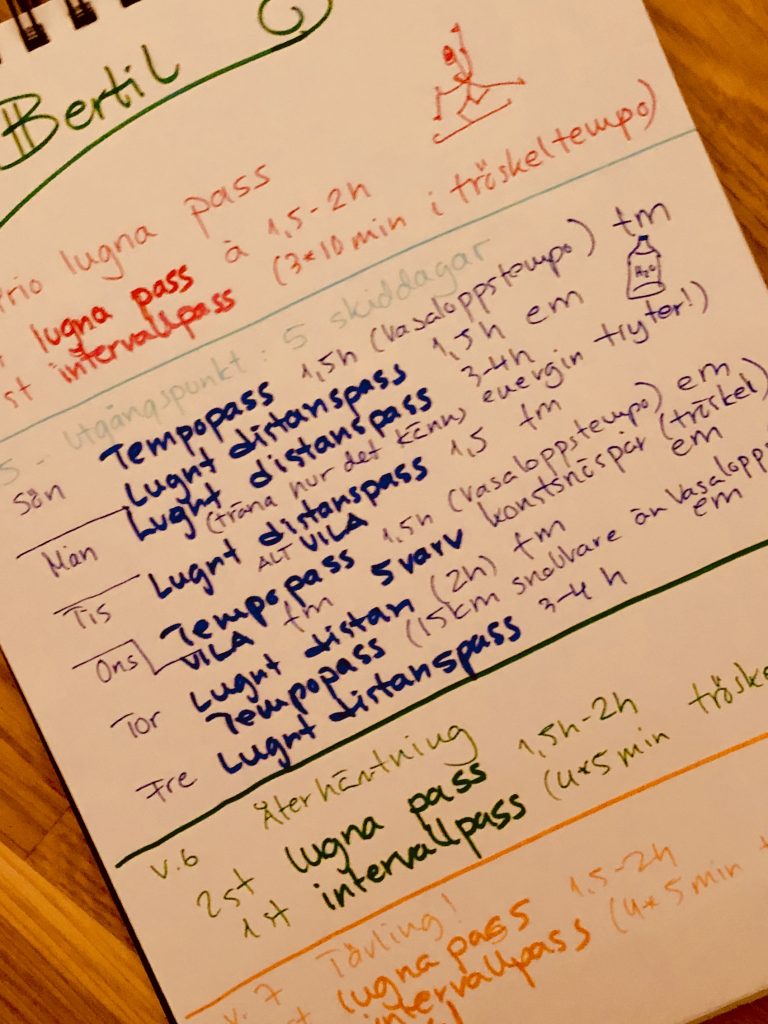 Bertil
Prio lugna pass
lugna pass à 1,5-2h
st intervallpass (3*10min i tröskeltempo)
5 - Utgångspunkt: 5 skiddagar
Sön Tempopass 1,5h (Vasaloppstempo) fm
Lugnt distanspass 1,5h em
H2O
Mån Lugnt distanspass 3-4h
(träna hur det känns energin tryter!)
Tis Lugnt distanspass 1,5 fm
ALT VILA
Ons Tempopass 1,5h (Vasaloppstempo) em
VILA fm 5 varv konstsnöspår (tröskel) em
Tor Lugnt distan (2h) fm
Tempopass (15km snabbare än Vasalopps em
Fre Lugnt distanspass 3-4 h
v.6 Återhämtning
2st lugna pass 1,5h-2h
1st intervallpass (4*5min tröske
v.7 Tävling!
st lugna pass 1,5-2h
intervallpass (4*5min t